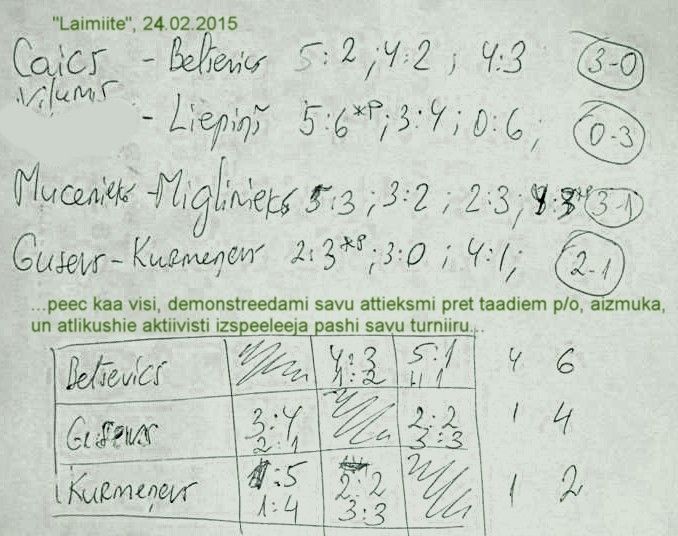 "Laimiite", 24.02.2015
Caics - Beļševics 5:2 ; 4:2 ; 4:3 3-0
Vilums - Liepiņš 5:6*P; 3:4; 0:6; 0-3
Mucenieks - Miglinieks 5:3; 3:2; 2:3; 3-1
Gusevs - Kurmeņevs 2:3*P; 3:0; 4:1; 2-1
...peec kaa visi, demonstreedami savu attieksmi pret taadiem p/o, aizmuka,
un atlikushie aktiivisti izspeeleeja pashi savu turniiru...
Beļševics 4:3 5:1 4 6
1:2 4:1
Gusevs 3:4 2:2 1 4
2:1 3:3
Kurmeņevs 1:5 2:2 1 2
1:4 3:3